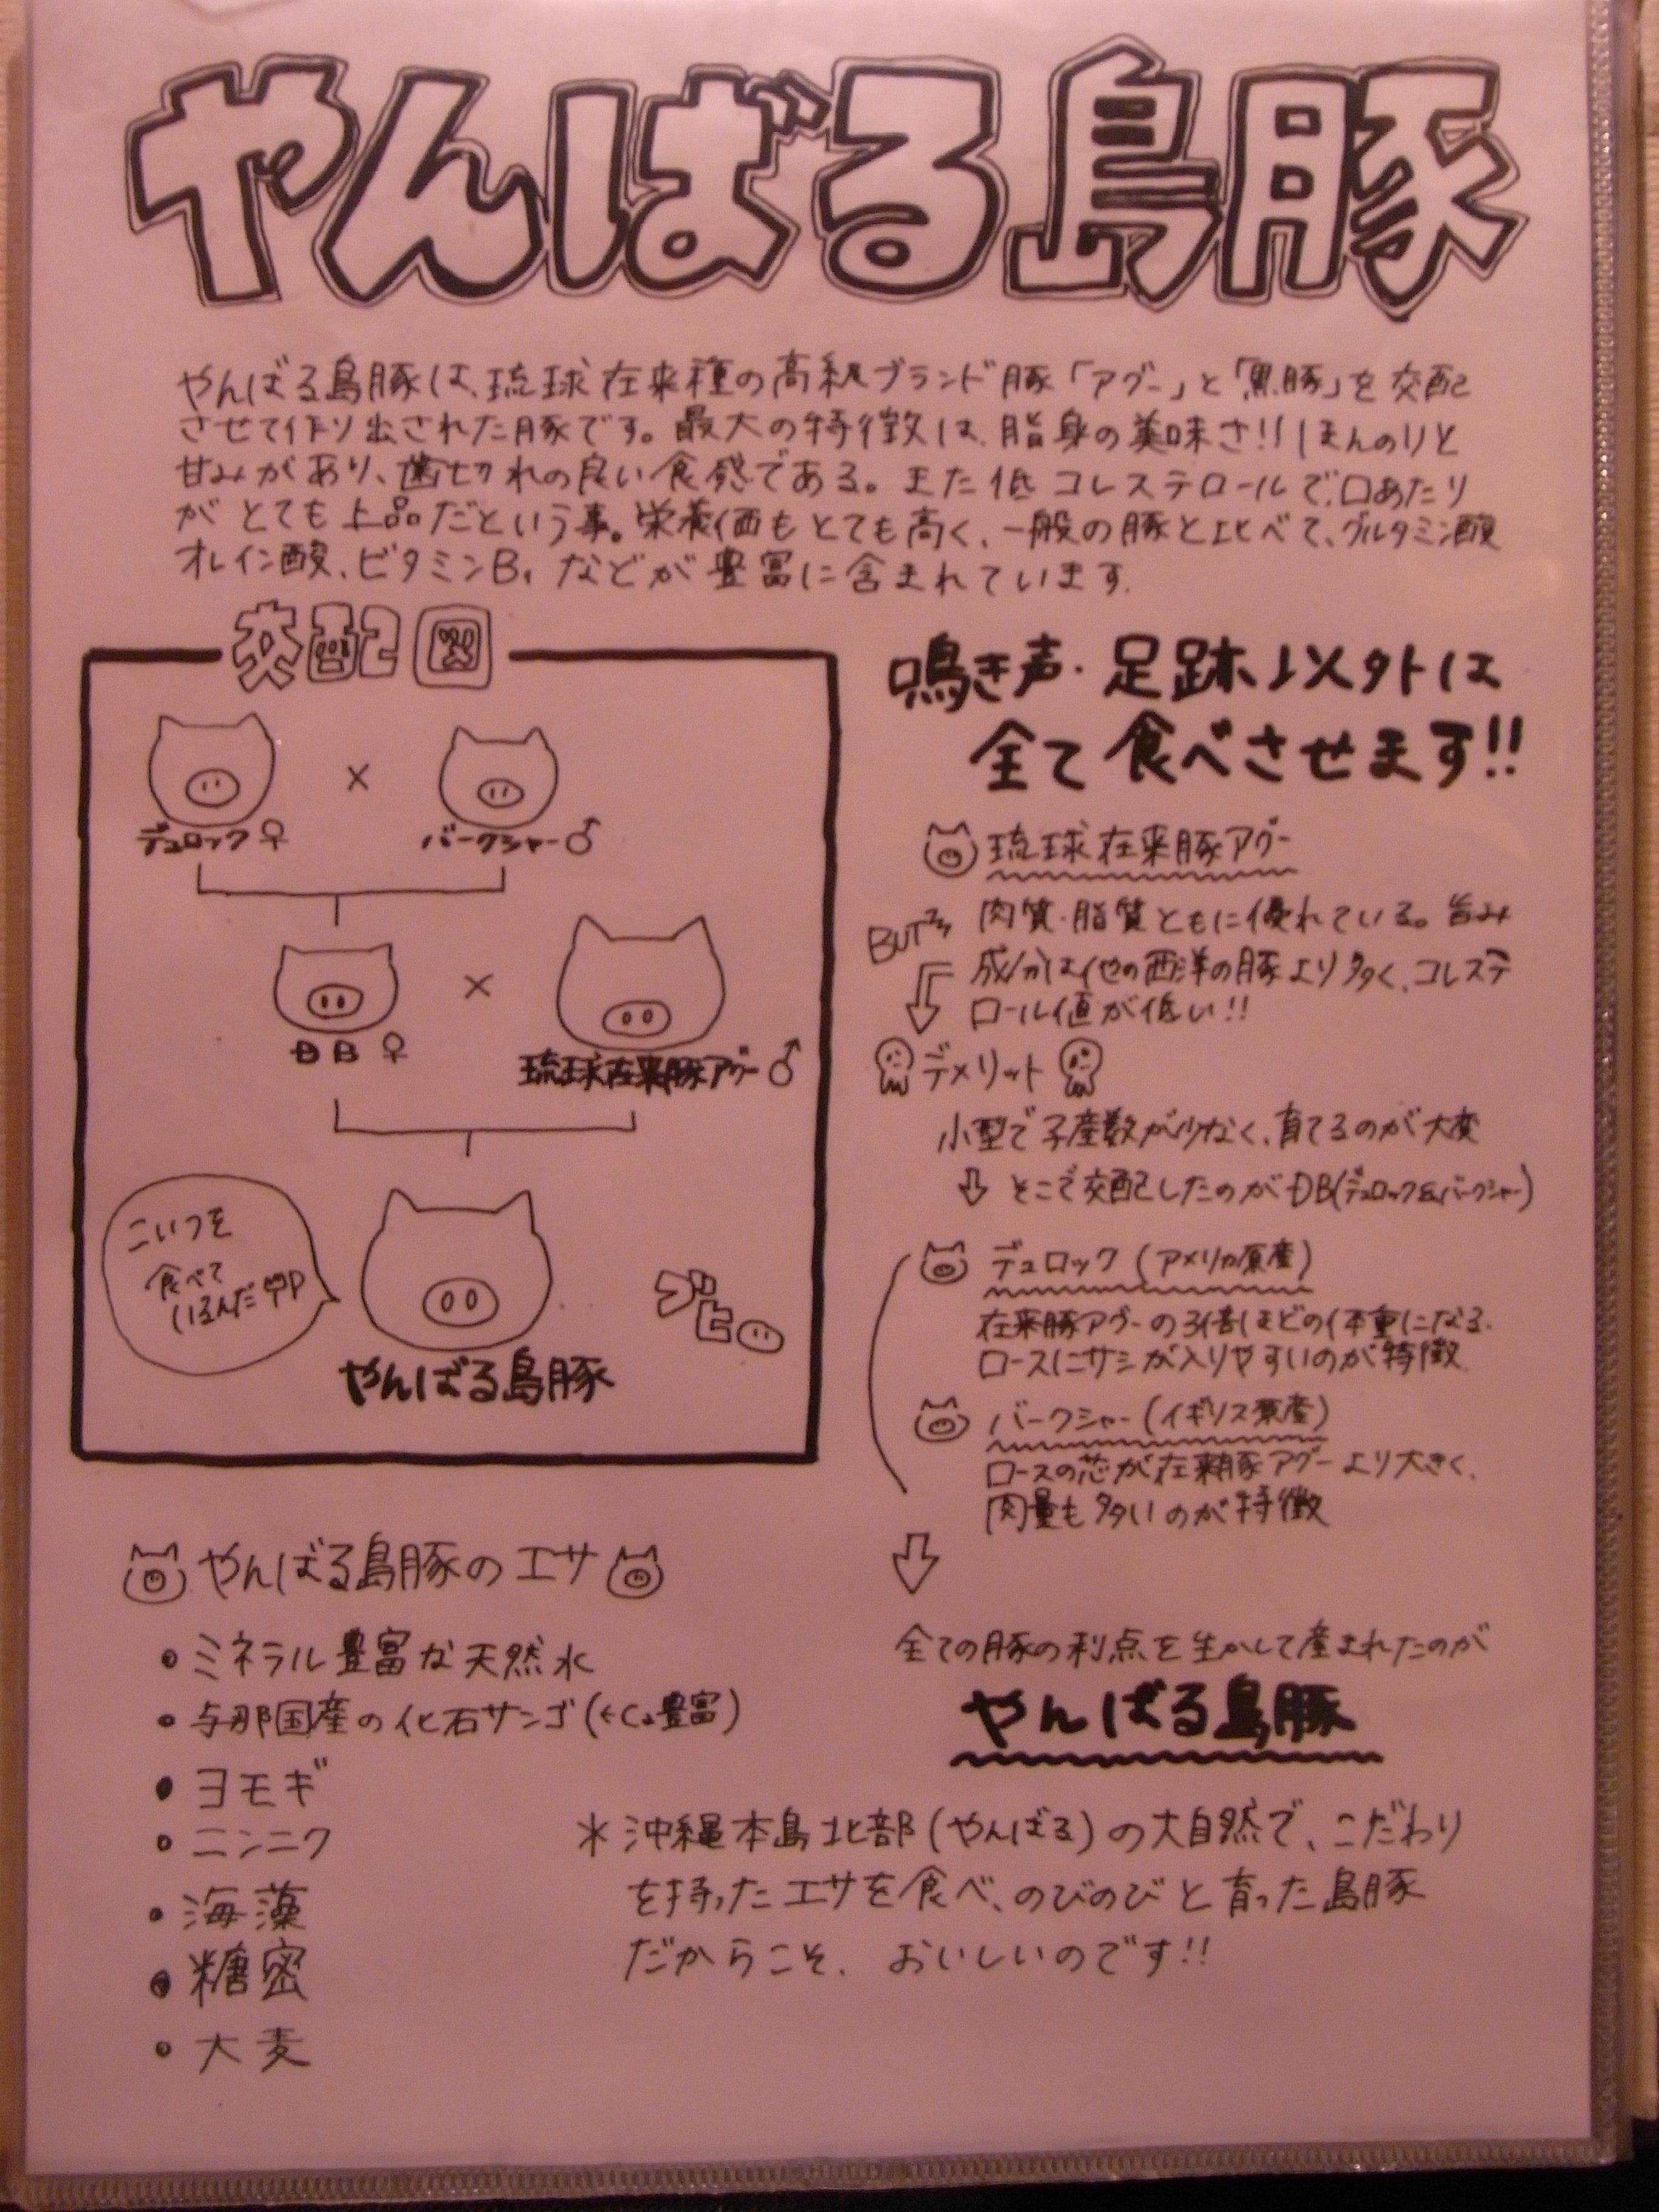 やんばる島豚
やんばる島豚は、琉球在来種の高級ブランド豚「アグー」と「黒豚」を交配
させて作り出された豚です。最大の特徴は、脂身の美味さ!!ほんのりと
甘みがあり、歯切れの良い食感である。また低コレステロールで、口あたり
がとても上品だという事。栄養価もとても高く、一般の豚と比べて、グルタミン酸
オレイン酸、ビタミンB1などが豊富に含まれています。
交配図
デュロック♀ × バークシャー♂
DB♀ × 琉球在来豚アグー♂
こいつを
食べて
いるんだ
ブヒ
やんばる島豚
鳴き声・足跡以外は
全て食べさせます!!
琉球在来豚アグー
肉質・脂質ともに優れている。旨み
成分は他の西洋の豚より多く、コレステ
ロール値が低い!!
BUT
デメリット
小型で子産数が少なく、育てるのが大変
そこで交配したのがDB(デュロック&バークシャー)
デュロック(アメリカ原産)
在来豚アグーの3倍ほどの体重になる。
ロースにサシが入りやすいのが特徴
バークシャー(イギリス原産)
ロースの芯が在来豚アグーより大きく、
肉量も多いのが特徴
全ての豚の利点を生かして産まれたのが
やんばる島豚
やんばる島豚のエサ
・ミネラル豊富な天然水
・与那国産の化石サンゴ(←Ca豊富)
・ヨモギ
・ニンニク
・海藻
・糖密
・大麦
*沖縄本島北部(やんばる)の大自然で、こだわり
を持ったエサを食べ、のびのびと育った島豚
だからこそ、おいしいのです!!